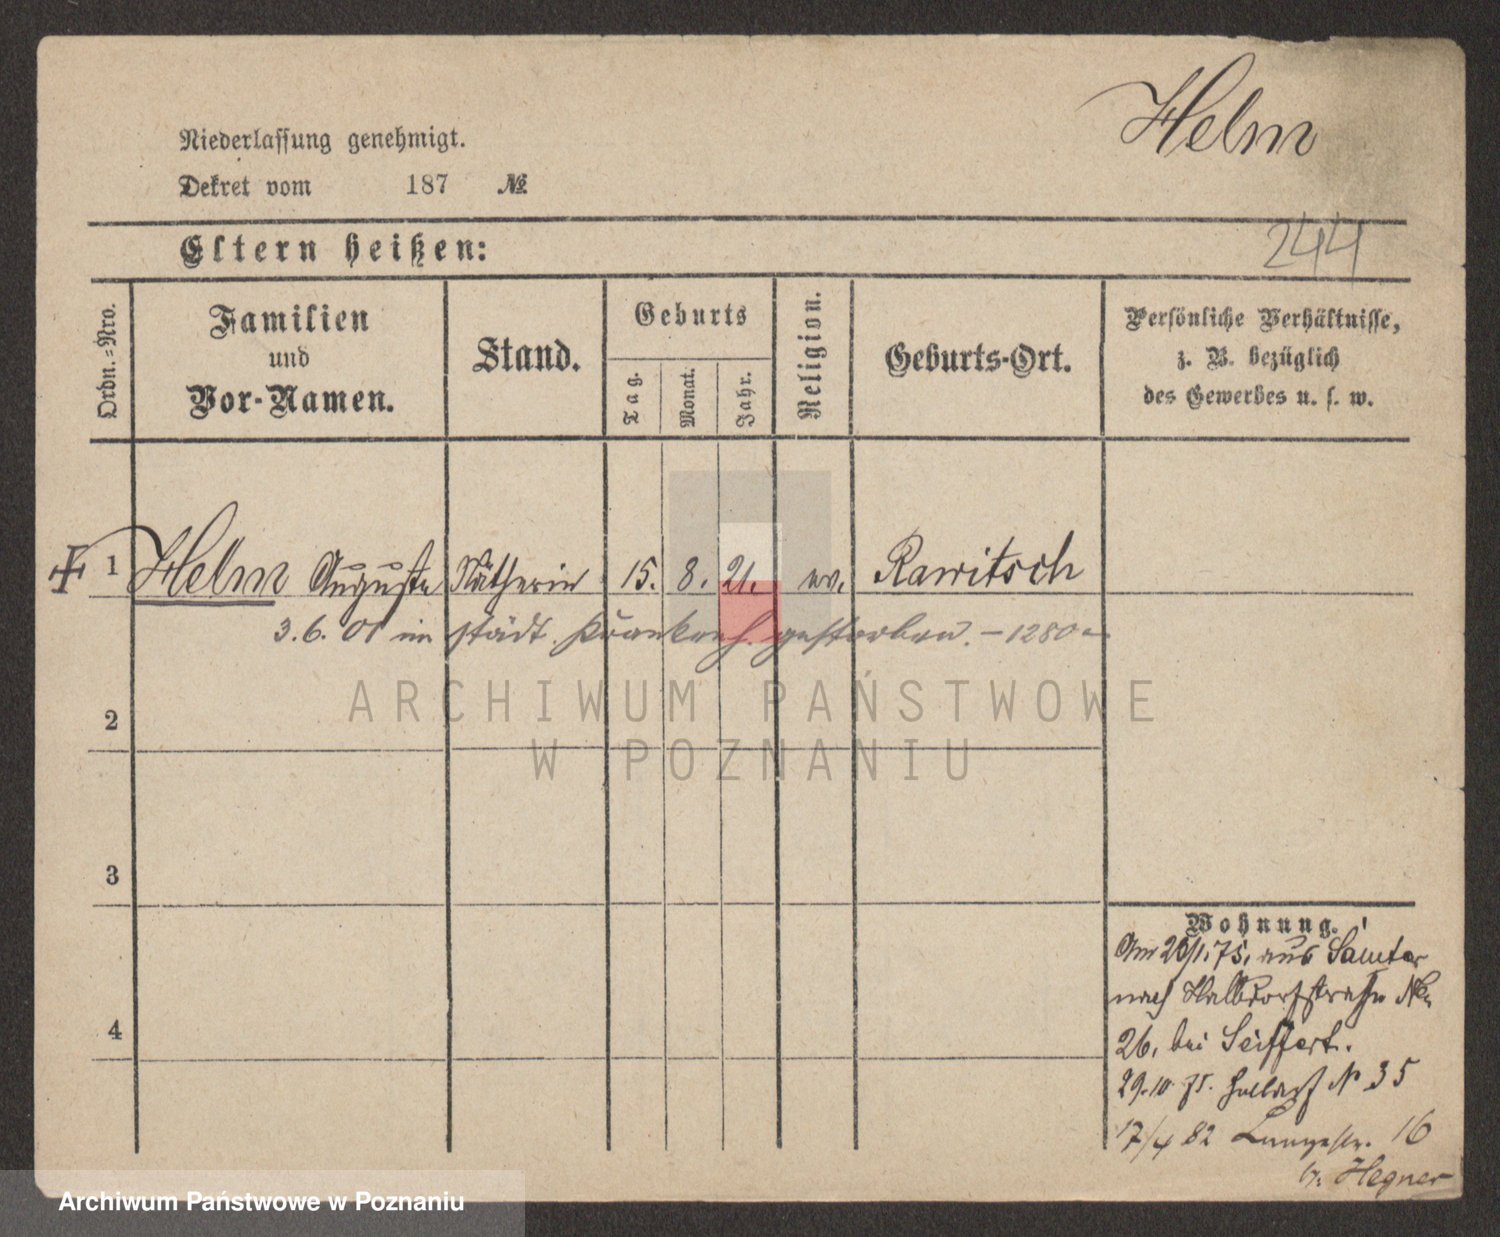 Helm
Niederlassung genehmigt.
Dekret vom 187 №
244
Eltern heißen:
Ordn.=Nro.
Familien
und
Vor-Namen.
Stand.
Geburts
Tag.
Monat.
Jahr.
Religion.
Geburts-Ort.
Persönliche Verhältnisse,
z. B. bezüglich
des Gewerbes u. s. w.
1 Helm Auguste Nätherin 15. 8. 21. ev. Rawitsch
3. 6. 01 im städt. Krankenh. gestorben. – 1280 –
2
3
4
Wohnung.
Am 26/1. 75. aus Samter
nach Halbdorfstraße No
26. bei Seiffert.
29. 10. 75. Halbdorf N 35
17/4 82 Langestr. 16
b. Hegner
ARCHIWUM PAŃSTWOWE
W POZNANIU
Archiwum Państwowe w Poznaniu